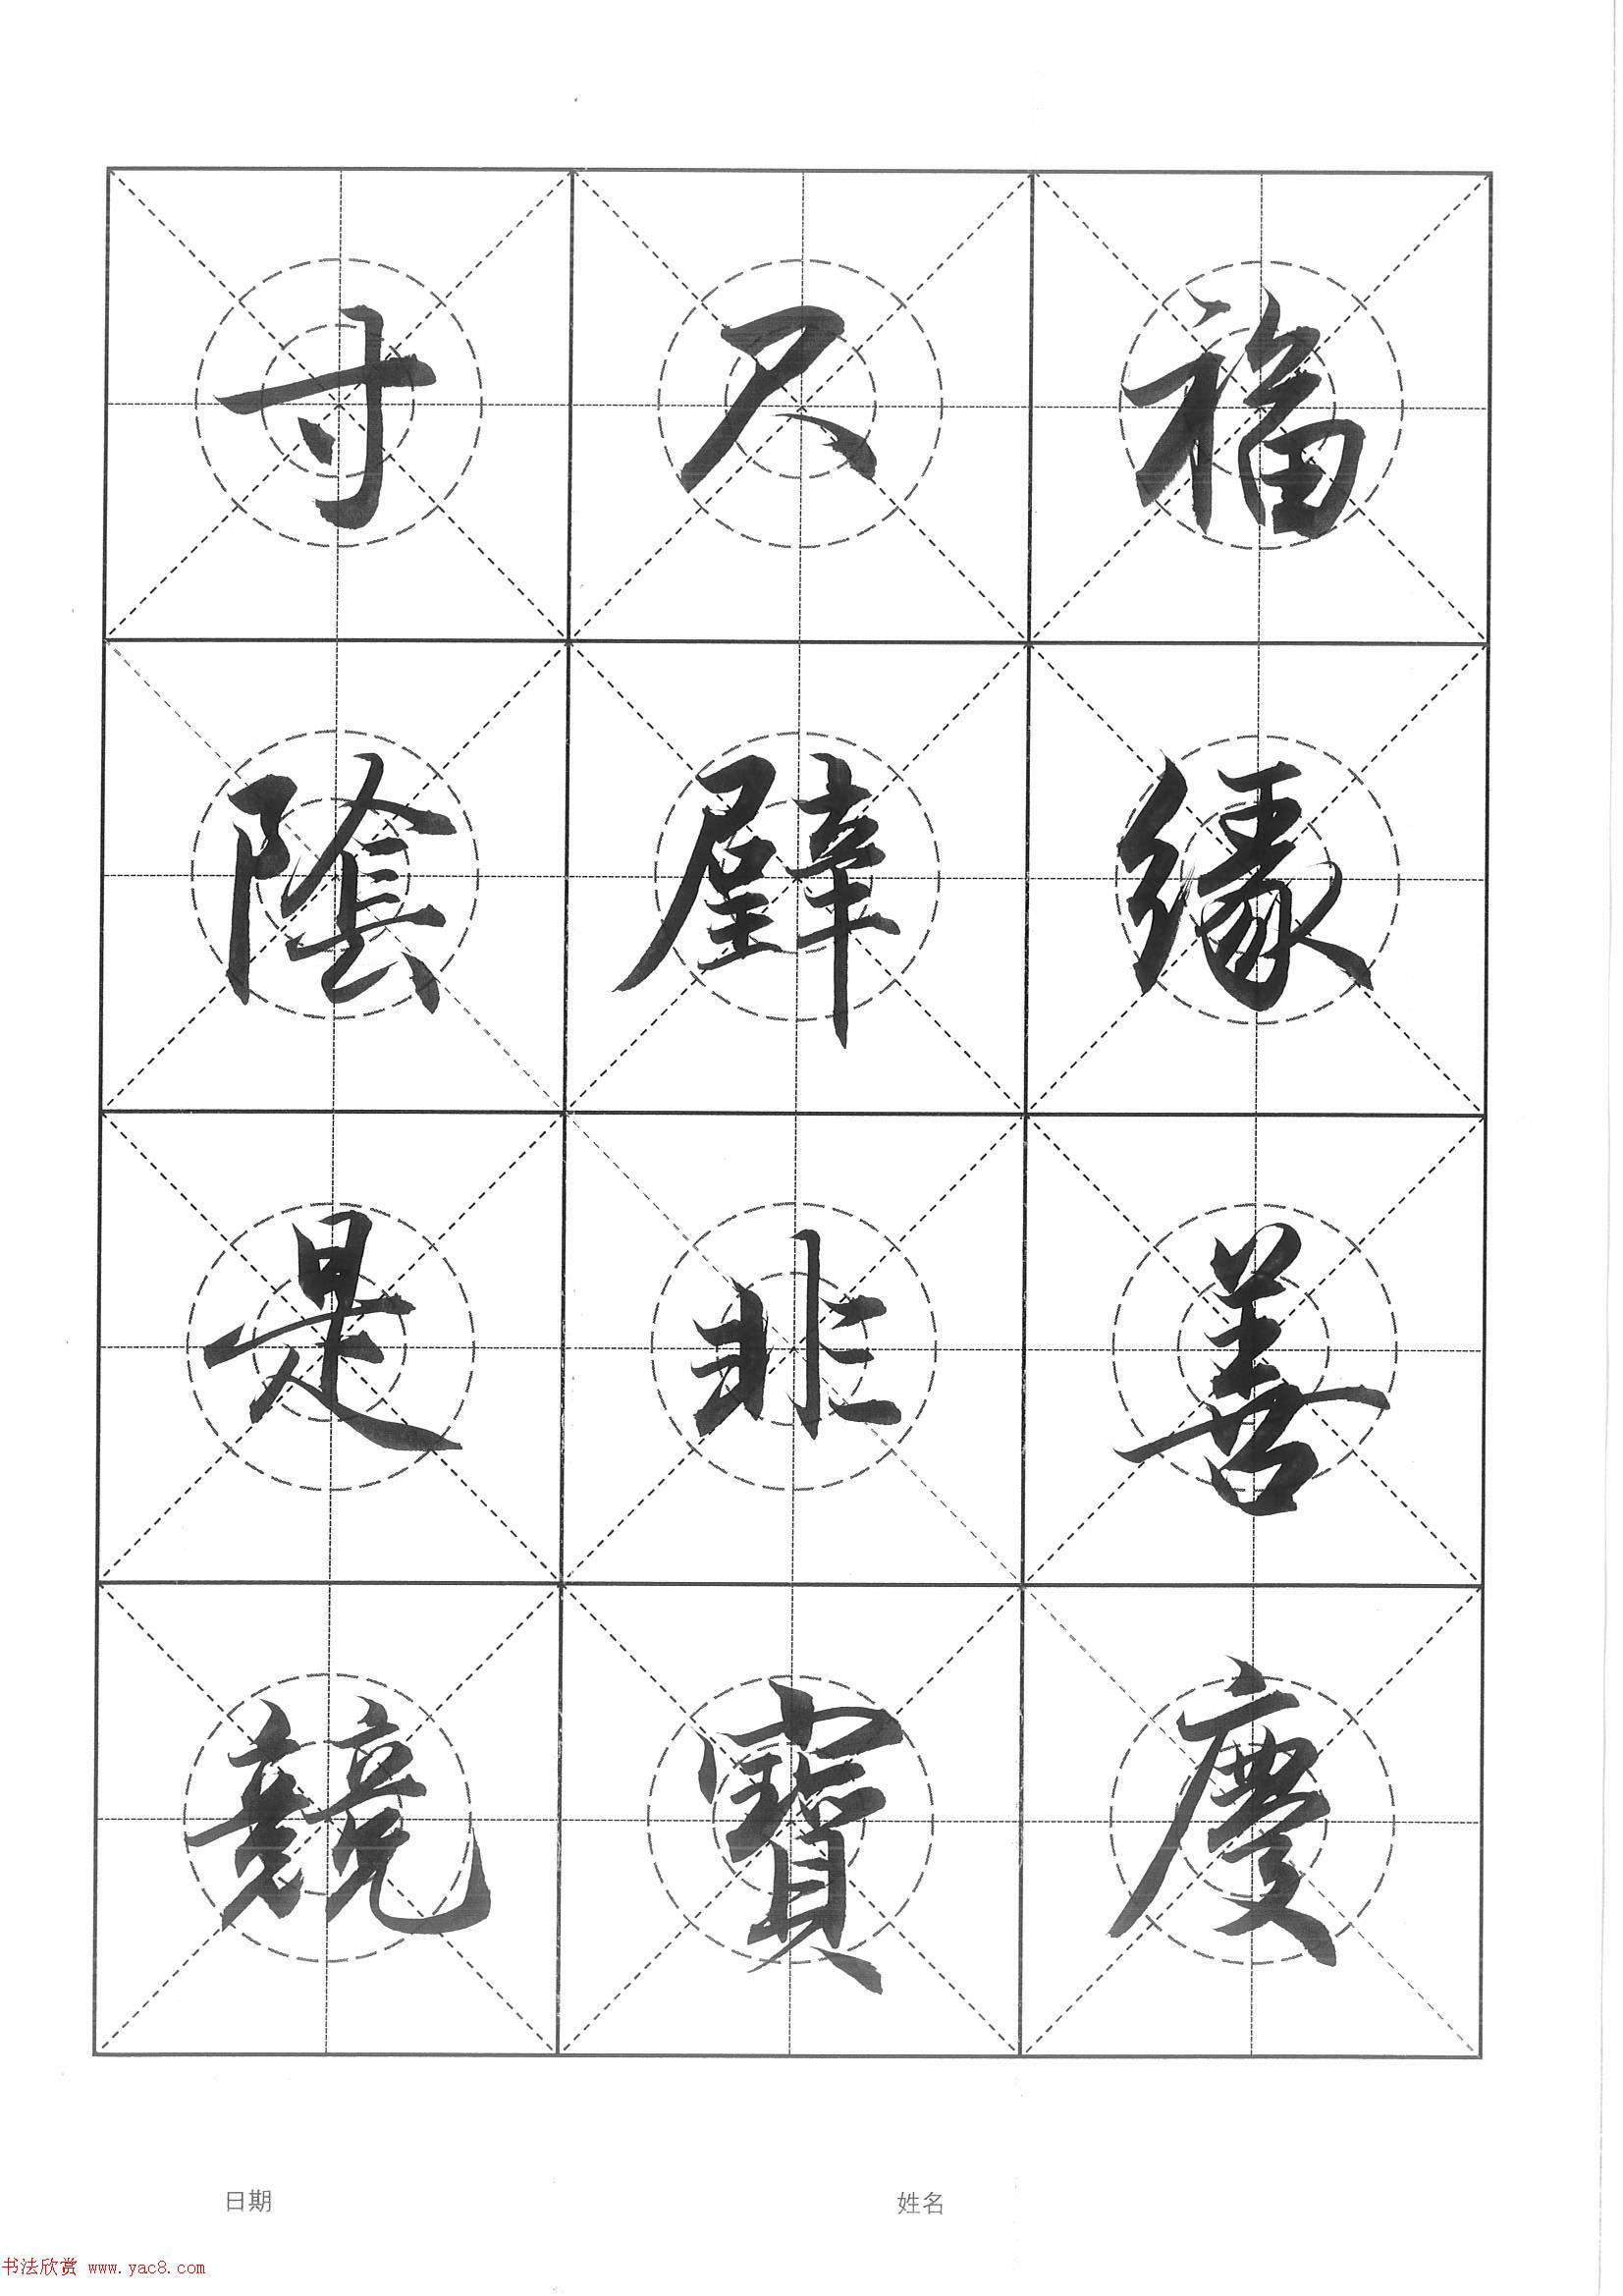 福緣善慶
尺璧非寶
寸陰是競
日期 姓名
书法欣赏 www.yac8.com